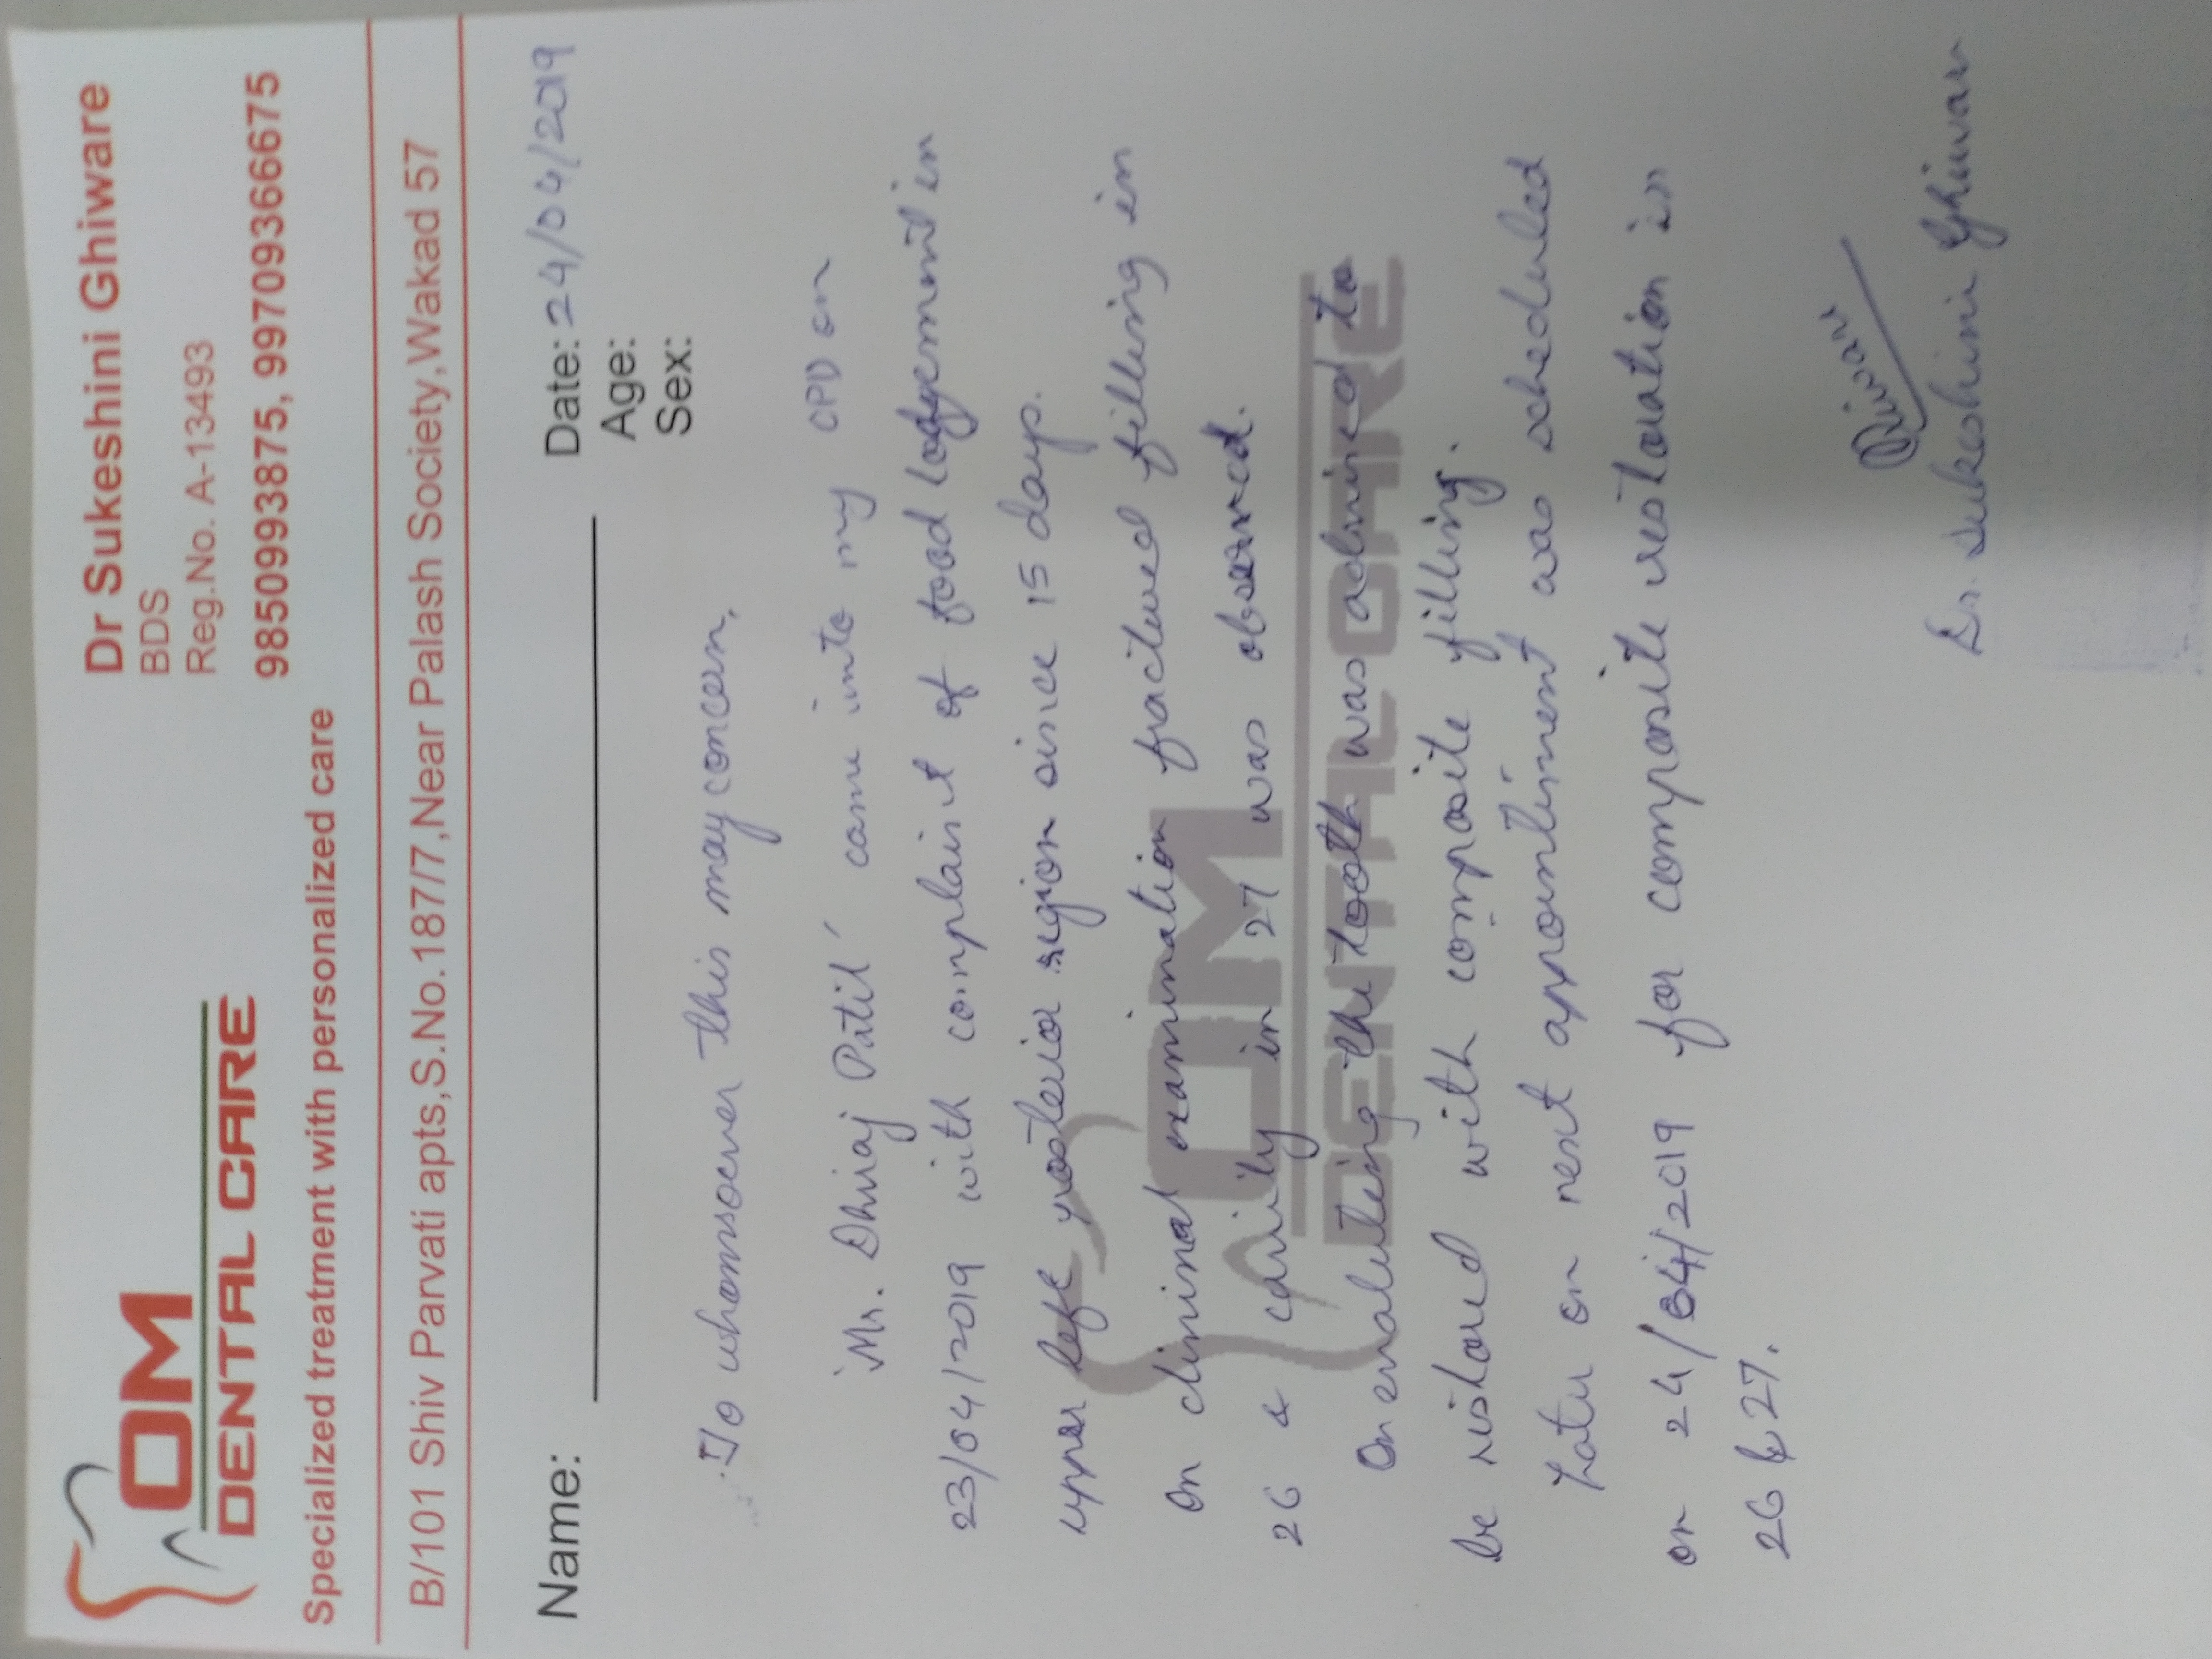 OM
DENTAL CARE
Specialized treatment with personalized care
Dr Sukeshini Ghiware
BDS
Reg.No. A-13493
9850993875, 99709366675
B/101 Shiv Parvati apts,S.No.187/7,Near Palash Society,Wakad 57
Name:
Date: 24/04/2019
Age:
Sex:
To whomsoever this may concern,
'Mr. Dhiraj Patil' came into my OPD on
23/04/2019 with complaint of food lodgement in
upper left posterior region since 15 days.
On clininal examination fractured filling in
26 & cavity in 27 was observed.
On evaluting the tooth was advised to
be restored with composite filling.
Later on next appointiment was scheduled
on 24/04/2019 for composite restoration in
26 & 27.
Dr. Sukeshini Ghiware
OM
DENTAL CARE